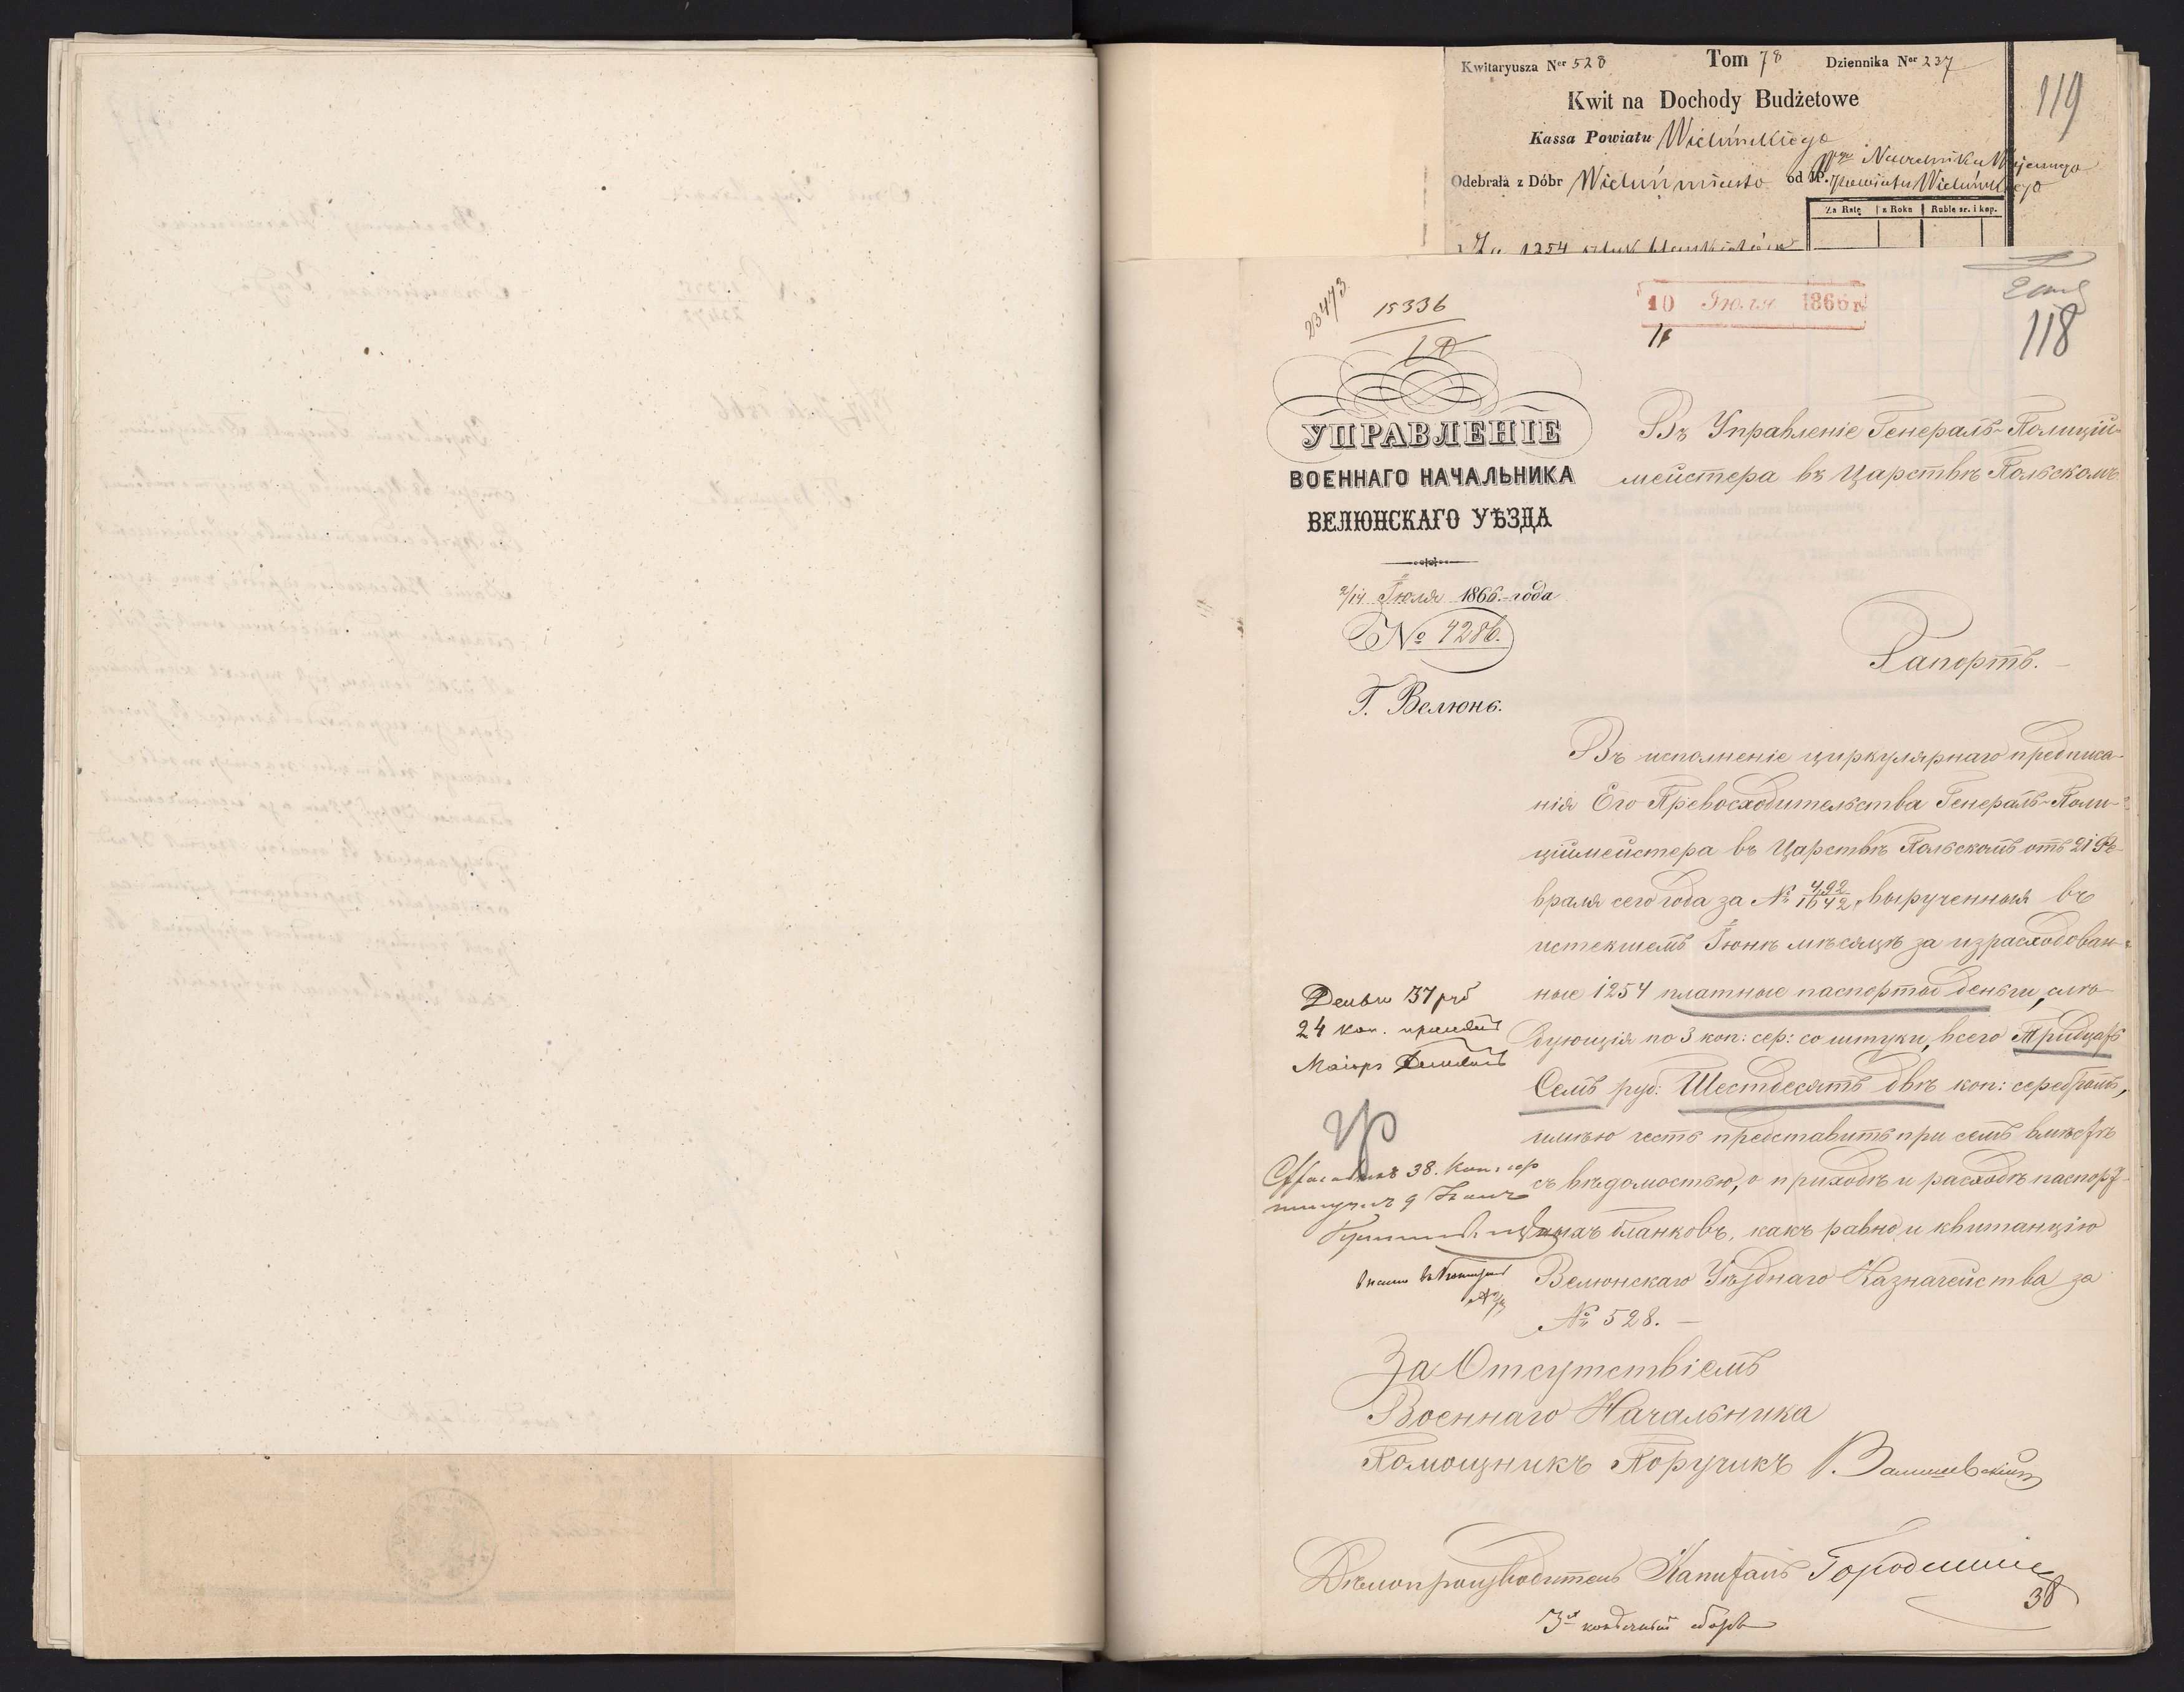 Kwitaryusza Ner 528 Tom 78 Dziennika Ner 237
119
Kwit na Dochody Budżetowe
Kassa Powiatu Wieluńskiego
Odebrała z Dóbr Wieluń miasto od WP. Naczelnika Wojennego
Powiatu Wieluńskiego
Za Ratę z Roku Ruble sr. i kop.
Za 1254 sztuk
23473
15336
10 Іюля 1866 г.
118
УПРАВЛЕНІЕ
ВОЕННАГО НАЧАЛЬНИКА
ВЕЛЮНСКАГО УѢЗДА
2/14 Іюля 1866 года
№ 4286.
Г. Велюнь.
Въ Управленіе Генералъ-Полицій-
мейстера въ Царствѣ Польскомъ
Рапортъ.
Въ исполненіе циркулярнаго предписа-
нія Его Превосходительства Генералъ-Поли-
ціймейстера въ Царствѣ Польскомъ отъ 21 Фе-
враля сего года за № 492/1642, вырученныя въ
истекшемъ Іюнѣ мѣсяцѣ за израсходован-
ные 1254 платные паспорты деньги, слѣ-
дующія по 3 коп: сер: со штуки, всего Тридцать
Семь руб: Шестдесятъ двѣ коп: серебромъ,
имѣю честь представить при семъ вмѣстѣ
съ вѣдомостью, о приходѣ и расходѣ паспорт-
ныхъ бланковъ, какъ равно и квитанцію
Велюнскаго Уѣзднаго Казначейства за
№ 528. —
Деньги 37 руб
24 коп. принялъ
Маіоръ
38. Коп. сер
получилъ
За Отсутствіемъ
Военнаго Начальника
Помощникъ Поручикъ
Дѣлопроизводитель Капитанъ
38
3х копѣечный сборъ